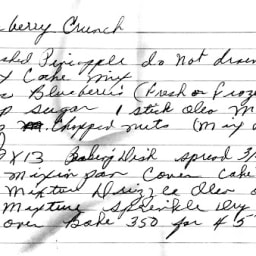 berry Crunch
Pineapple do not drain
Cake Mix
Blueberries (Fresh or Froze
sugar 1 stick Oleo M
Chopped nuts (May
X13 Baking Dish spread 3/
Mix in pan Cover Cake
Mixture Drizzle Oleo o
Mixture sprinkle
over Bake 350 for 45